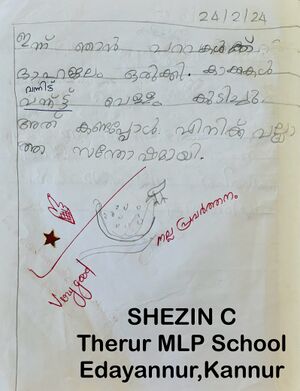 24/2/24
ഇന്ന് ഞാൻ പറവകൾക്ക്
ദാഹജലം ഒരുക്കി. കാക്കകൾ
വന്നിട്ട്
വന്ന്ട്ട് വെള്ളം കുടിച്ചു.
അത് കണ്ടപ്പോൾ എനിക്ക് വല്ലാ
ത്ത സന്തോഷമായി.
നല്ല പ്രവർത്തനം
Very good
SHEZIN C
Therur MLP School
Edayannur,Kannur